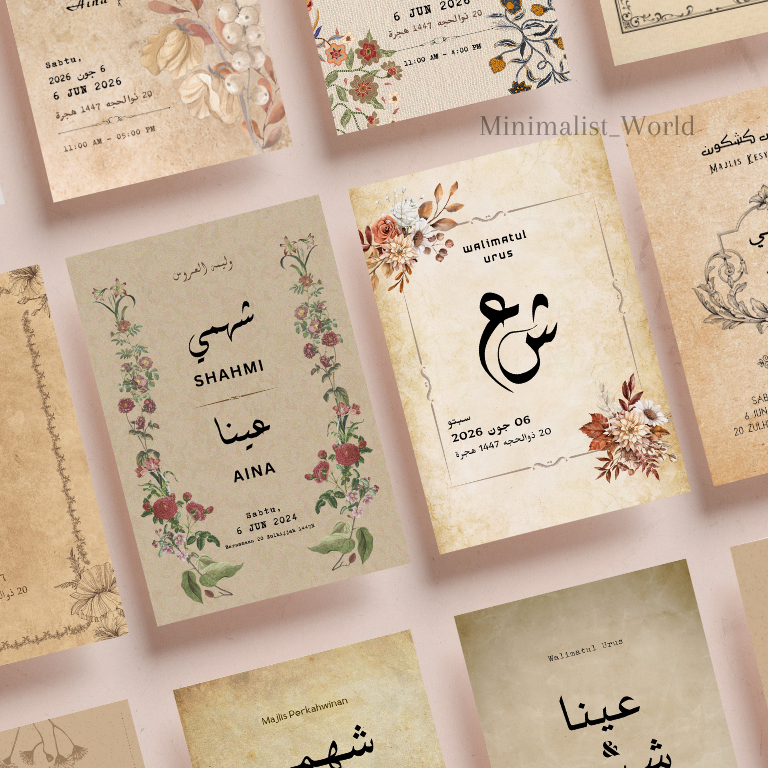 Aina
Sabtu,
6 جون 2026
6 JUN 2026
20 ذوالحجه 1447 هجرة
11:00 AM - 05:00 PM
6 JUN 2026
20 ذوالحجه 1447 هجرة
11:00 AM - 4:00 PM
Minimalist_World
وليمة العروس
شهمي
SHAHMI
عينا
AINA
Sabtu,
6 JUN 2024
Bersamaan 20 Zulhijjah 1447H
walimatul
urus
ع ش
سبتو
06 جون 2026
20 ذوالحجه 1447 هجرة
كشكون
MAJLIS
20 ذوا
Majlis Perkahwinan
شهمي
Walimatul Urus
عينا
&